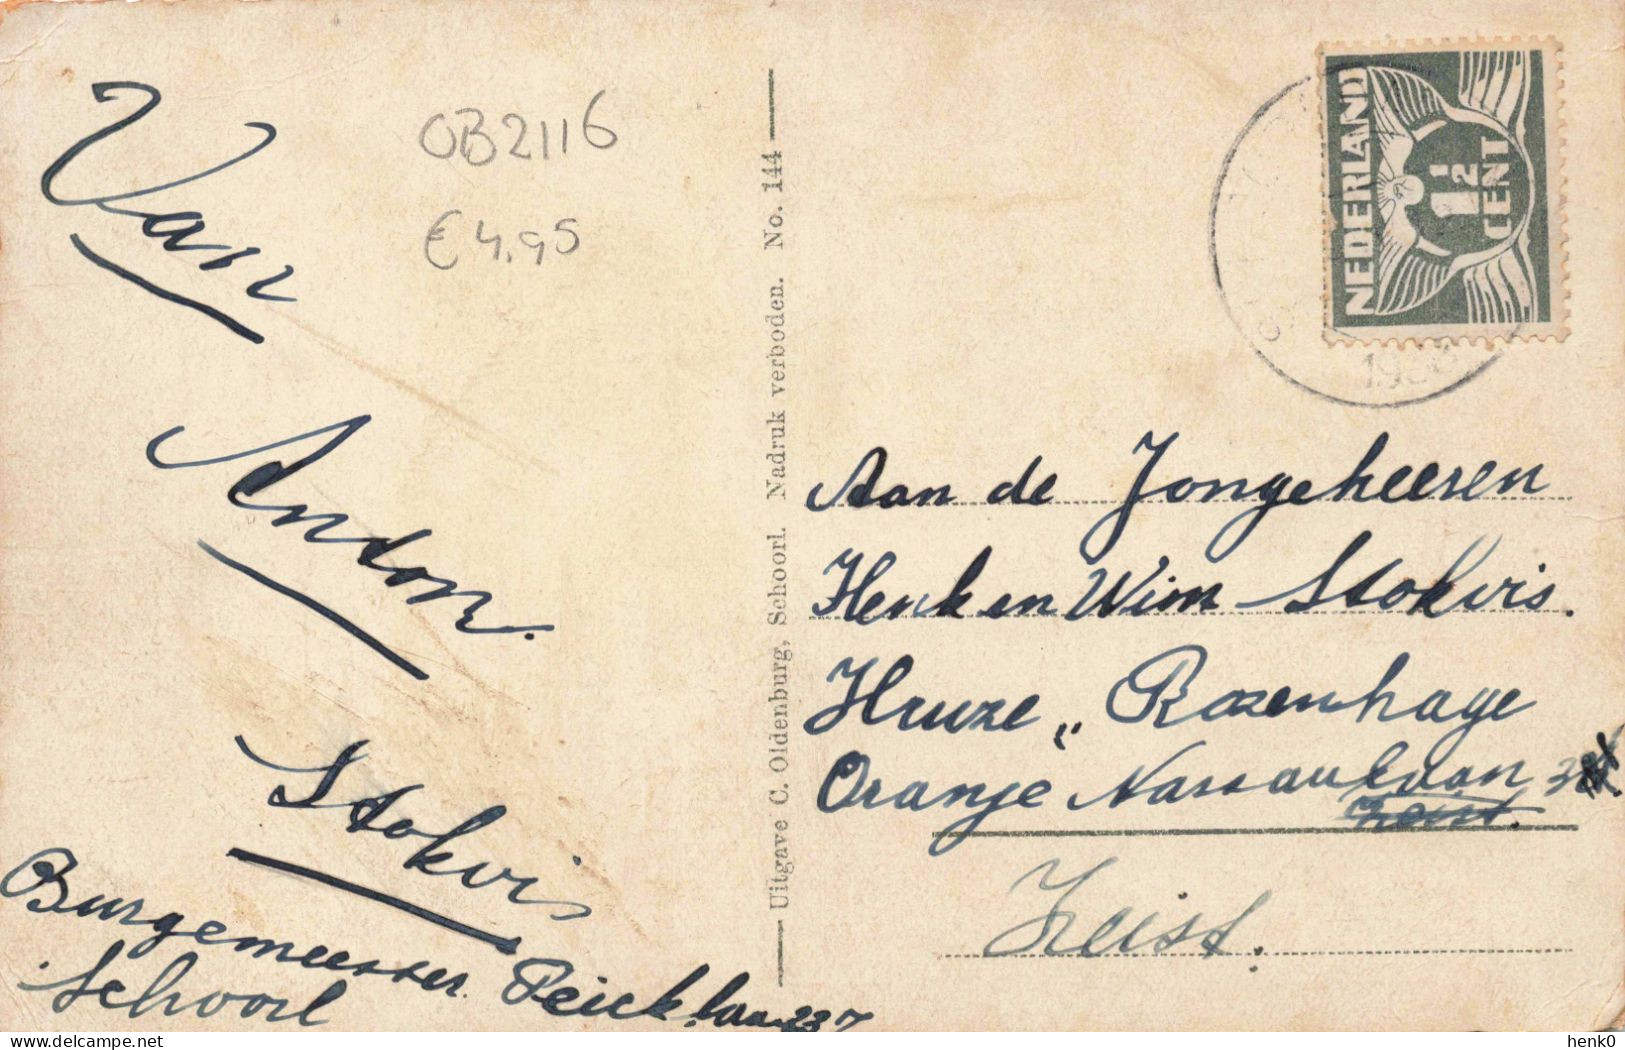 Van
Anton.
Stokvis
Burgemeester Peecklaan 237
Schoorl
OB2116
€ 4,95
Uitgave C. Oldenburg, Schoorl. Nadruk verboden. No. 144
NEDERLAND
1½
CENT
Aan de Jongeheeren
Henk en Wim Stokvis.
Huize „ Rozenhage
Oranje Nassaulaan
Zeist.
henk0